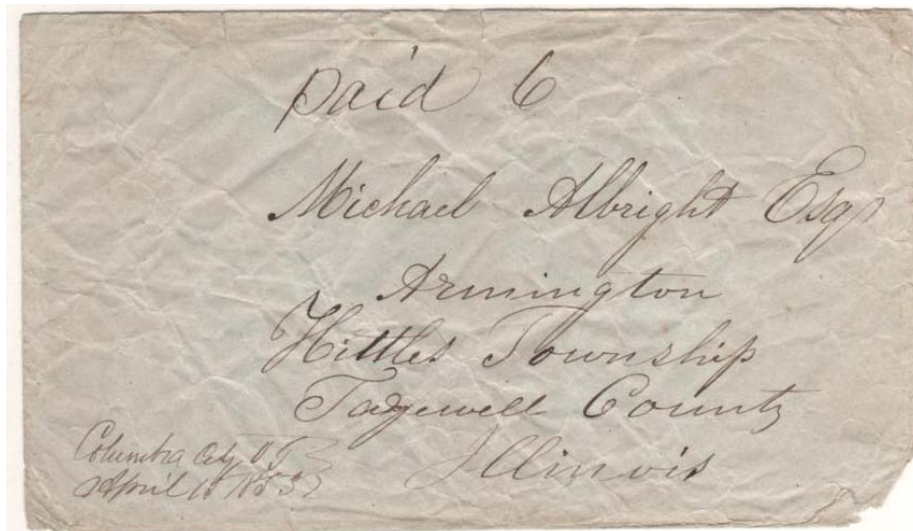 Paid 6
Michael Albright Esqr
Armington
Hittles Township
Tazewell County
Illinois
Columbia City O T
April 10 1853